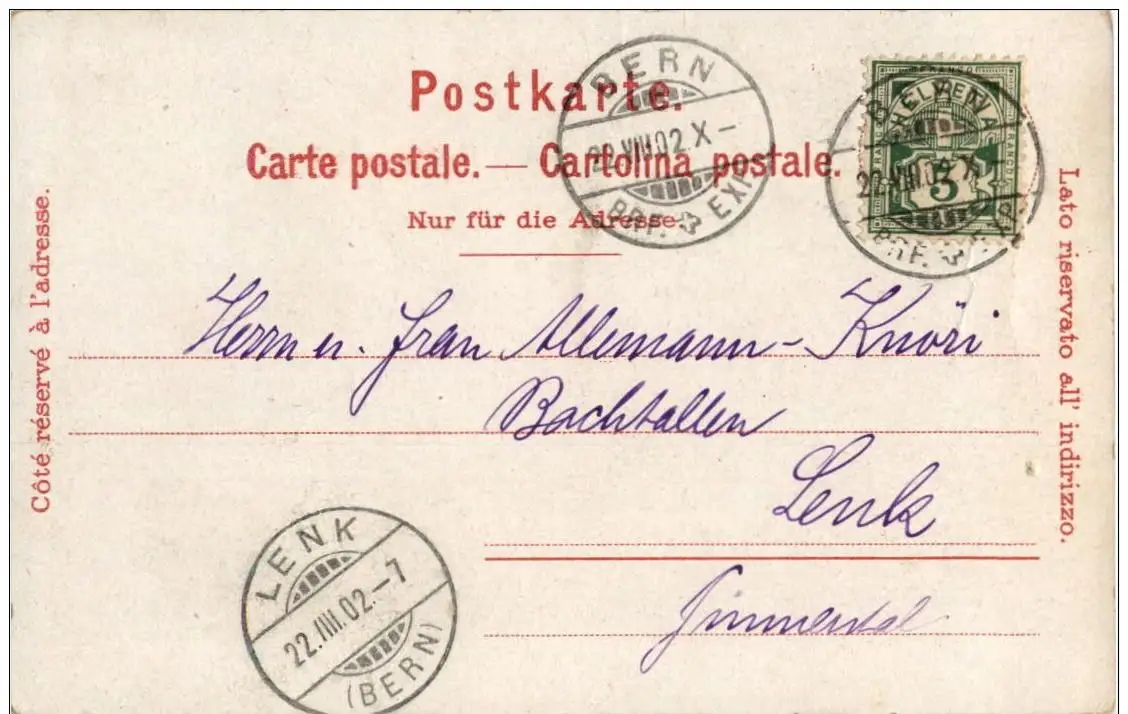 Postkarte.
Carte postale. — Cartolina postale.
Nur für die Adresse.
Côté réservé à l'adresse.
Lato riservato all' indirizzo.
BERN
22.VIII.02.X–
BRF. EXP.
HELVETIA
FRANCO
5
22.VIII.02.X–
BRF. EXP.
Herrn u. Frau Allemann – Knöri
Bachtallen
Lenk
Simmental
LENK
22.VIII.02.–7
(BERN)